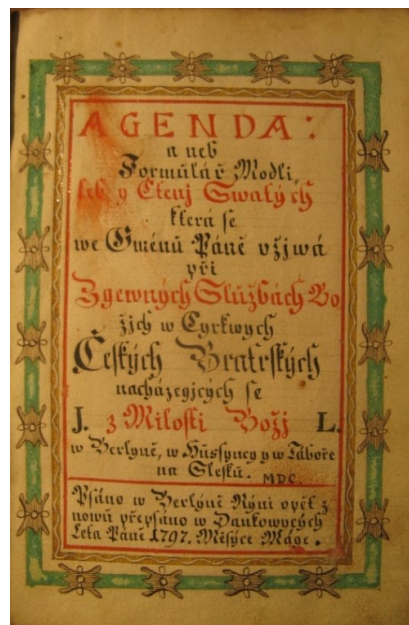 AGENDA:
aneb
Formůlář Modli,
teb y Čtenj Swatých
ktera se
we Gménů Páně vžjwá
při
Zgewných Slůžbách Bo
žjch w Cyrkwych
Českých Bratrských
nacházegjcých se
J. z Milosti Božj L.
w Berlyně, w Hůssyncy y w Táboře
na Slesků. MDC.
Psáno w Berlyně Nyni opět z
nowů přepsáno w Daukowcých
Leta Páně 1797. Měsyce Máge.